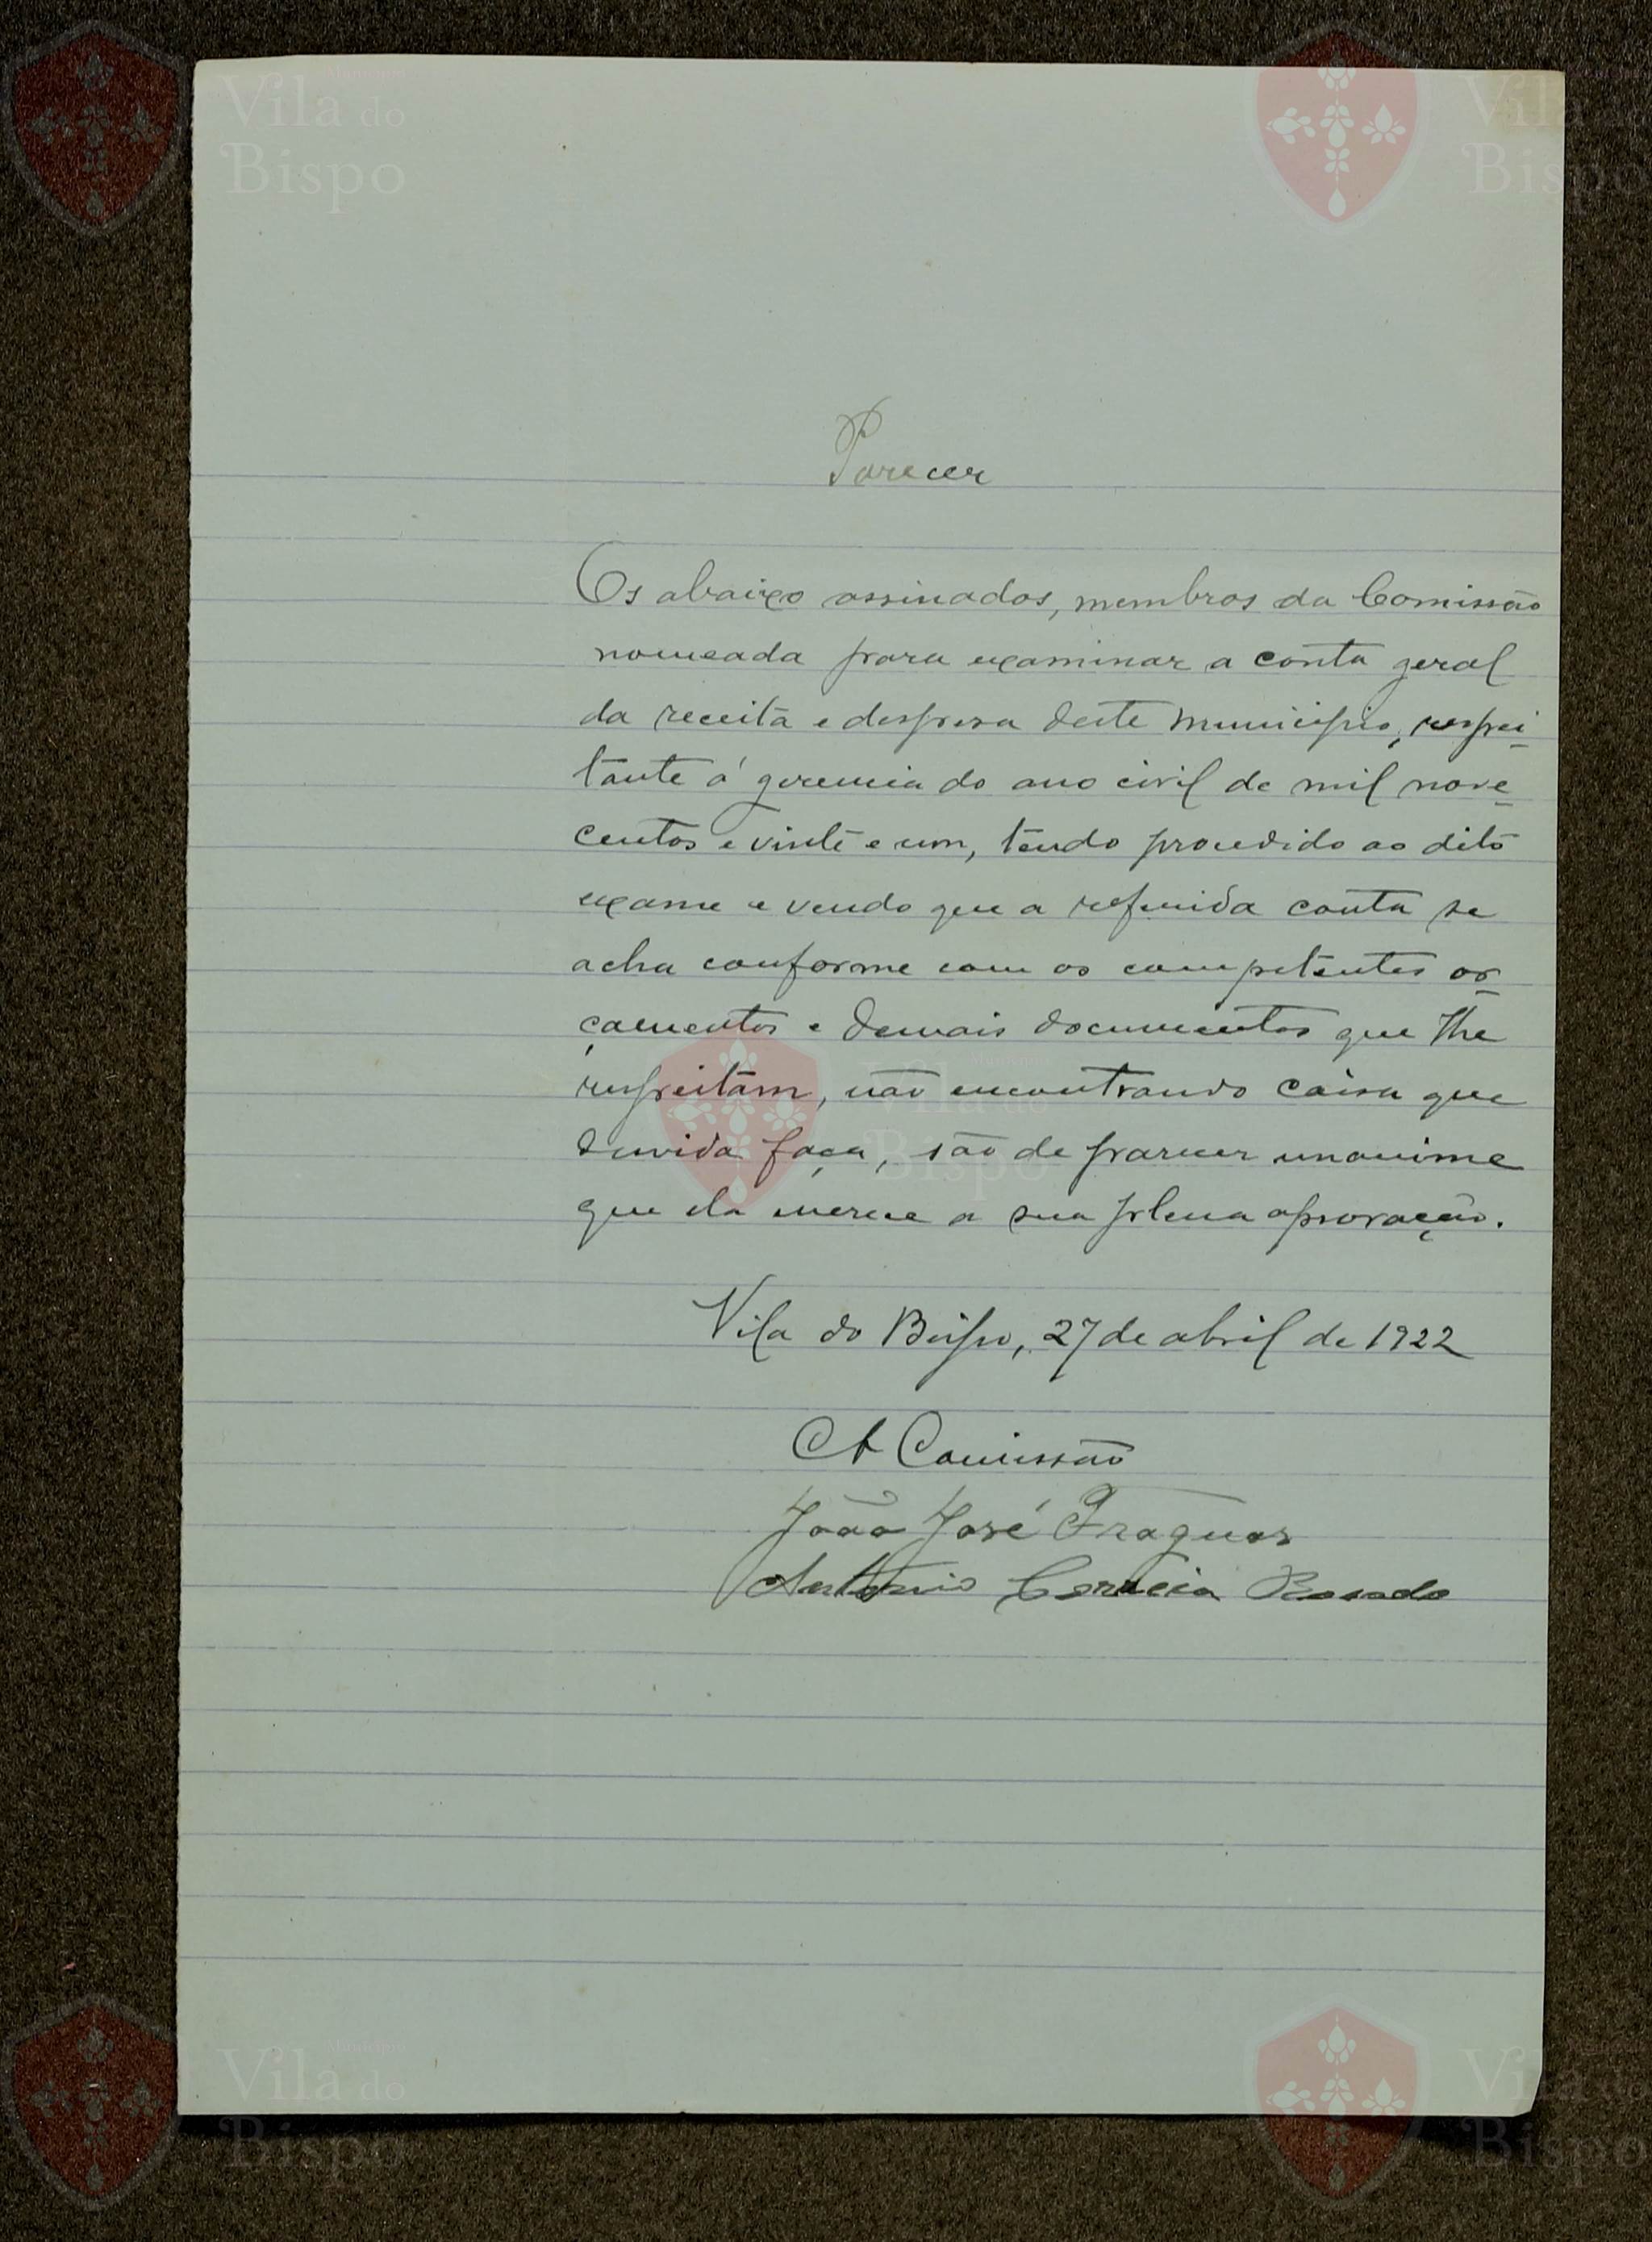 Município
Vila do
Bispo
Vila
Bispo
Parecer
Os abaixo assinados, membros da Comissão
nomeada para examinar a conta geral
da receita e despesa deste Municipio, respei-
tante á gerencia do ano civil de mil nove-
centos e vinte e um, tendo procedido ao dito
exame e vendo que a referida conta se
acha conforme com os competentes or-
çamentos e demais documentos que lhe
respeitam, não encontrando coisa que
duvida faça, são de parecer unanime
que ela merece a sua plena aprovação.
Vila do Bispo, 27 de abril de 1922
A Comissão
João José Fragoas
Antonio Correia Rosado
Município
Vila do
Bispo
Vila
Bispo